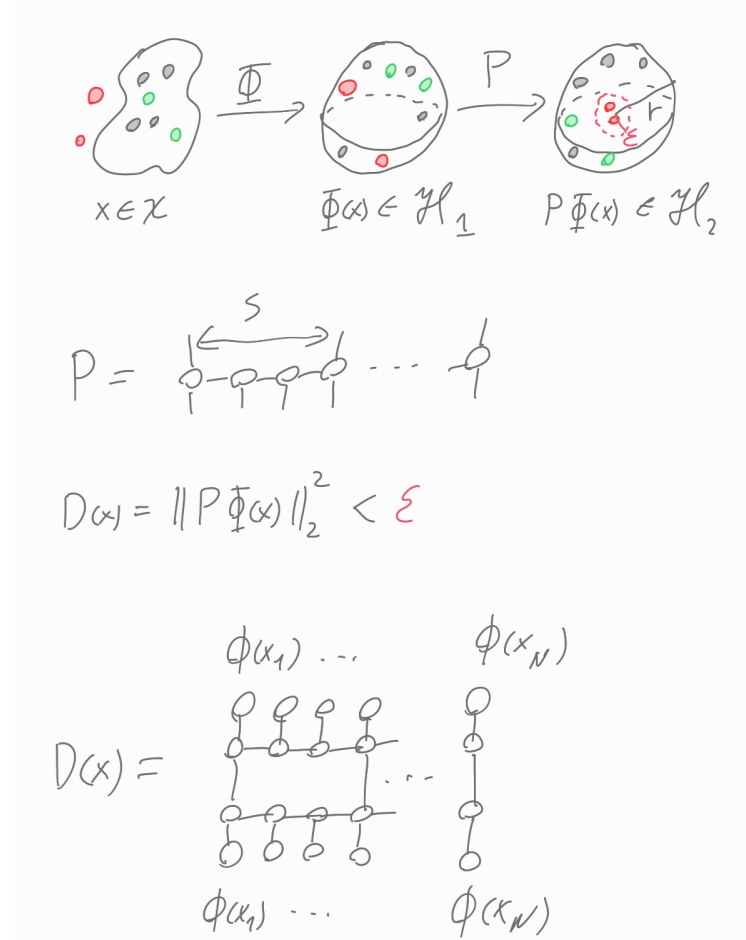 Φ P
r
ε
x ∈ X Φ(x) ∈ ℋ₁ PΦ(x) ∈ ℋ₂
S
P = ...
D(x) = ||PΦ(x)||₂² < ε
ϕ(x₁) ... ϕ(x_N)
D(x) = ...
ϕ(x₁) ... ϕ(x_N)